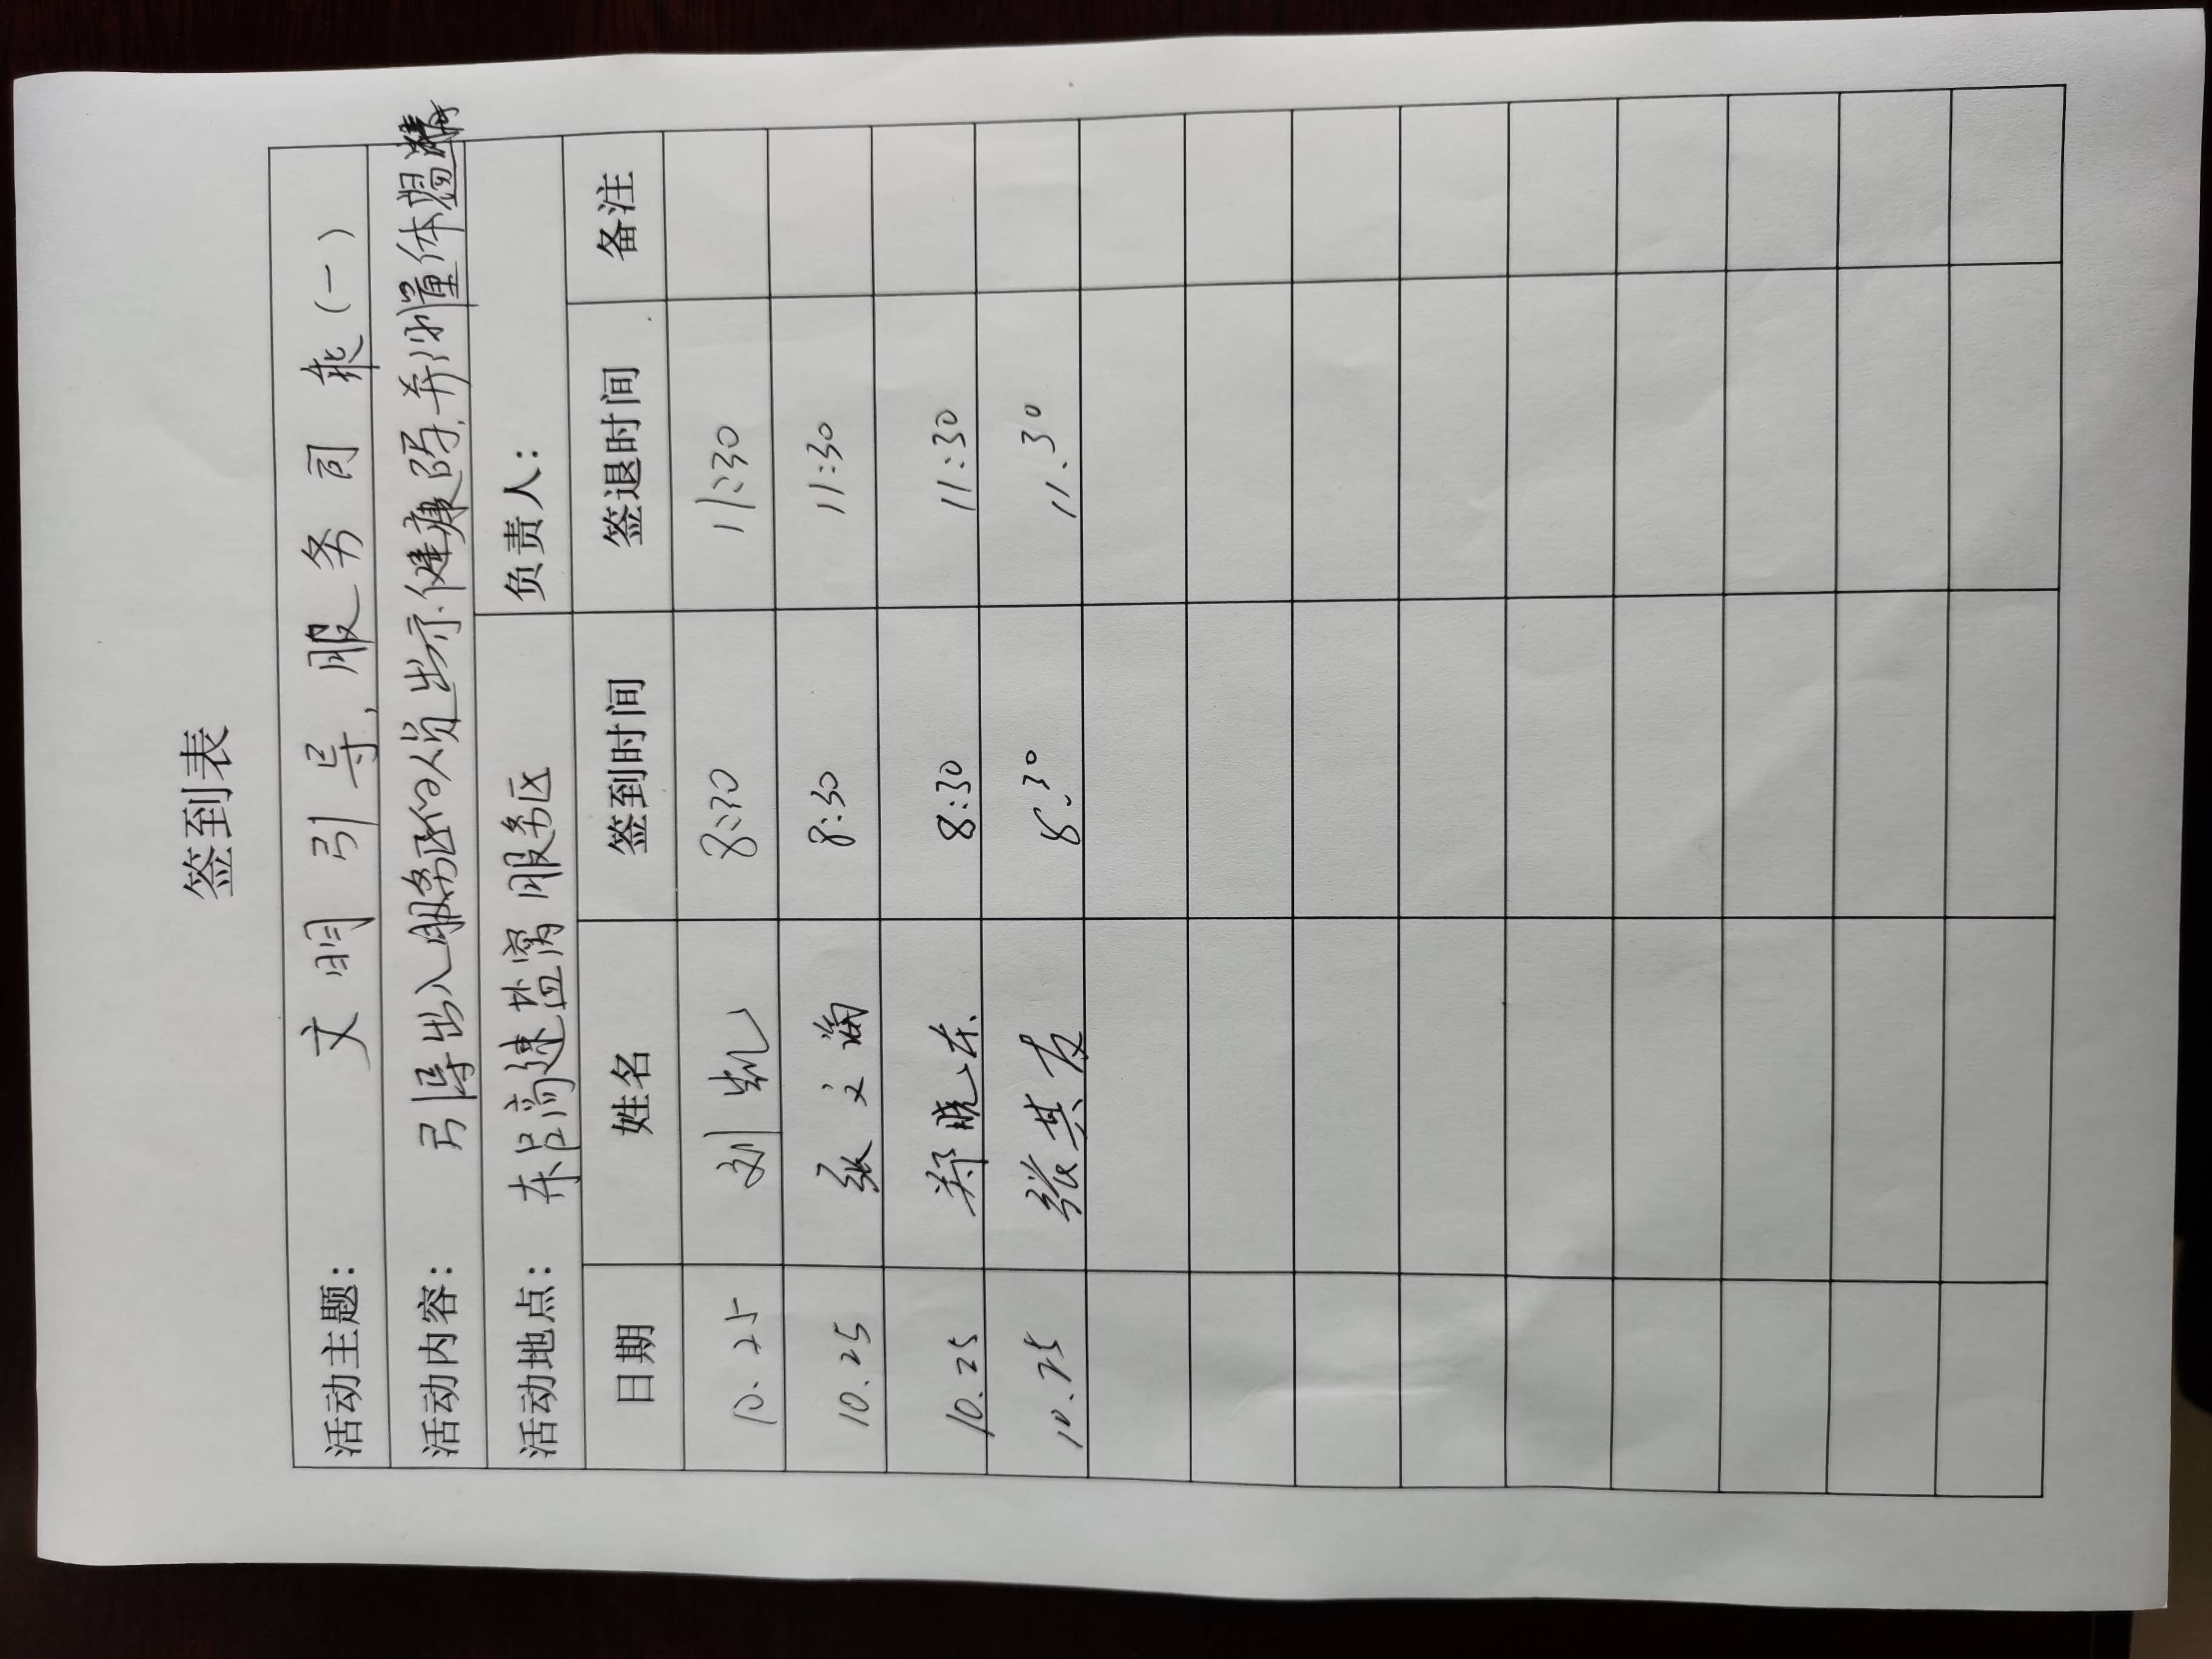 签到表
活动主题： 文明引导，服务司乘（一）
活动内容： 引导出入服务区的人员出示健康码，并测量体温
活动地点： 东吕高速盐窝服务区 负责人：
日期 姓名 签到时间 签退时间 备注
10.25 刘凯 8:30 11:30
10.25 张文海 8:30 11:30
10.25 郑晓东 8:30 11:30
10.25 张其友 8:30 11:30